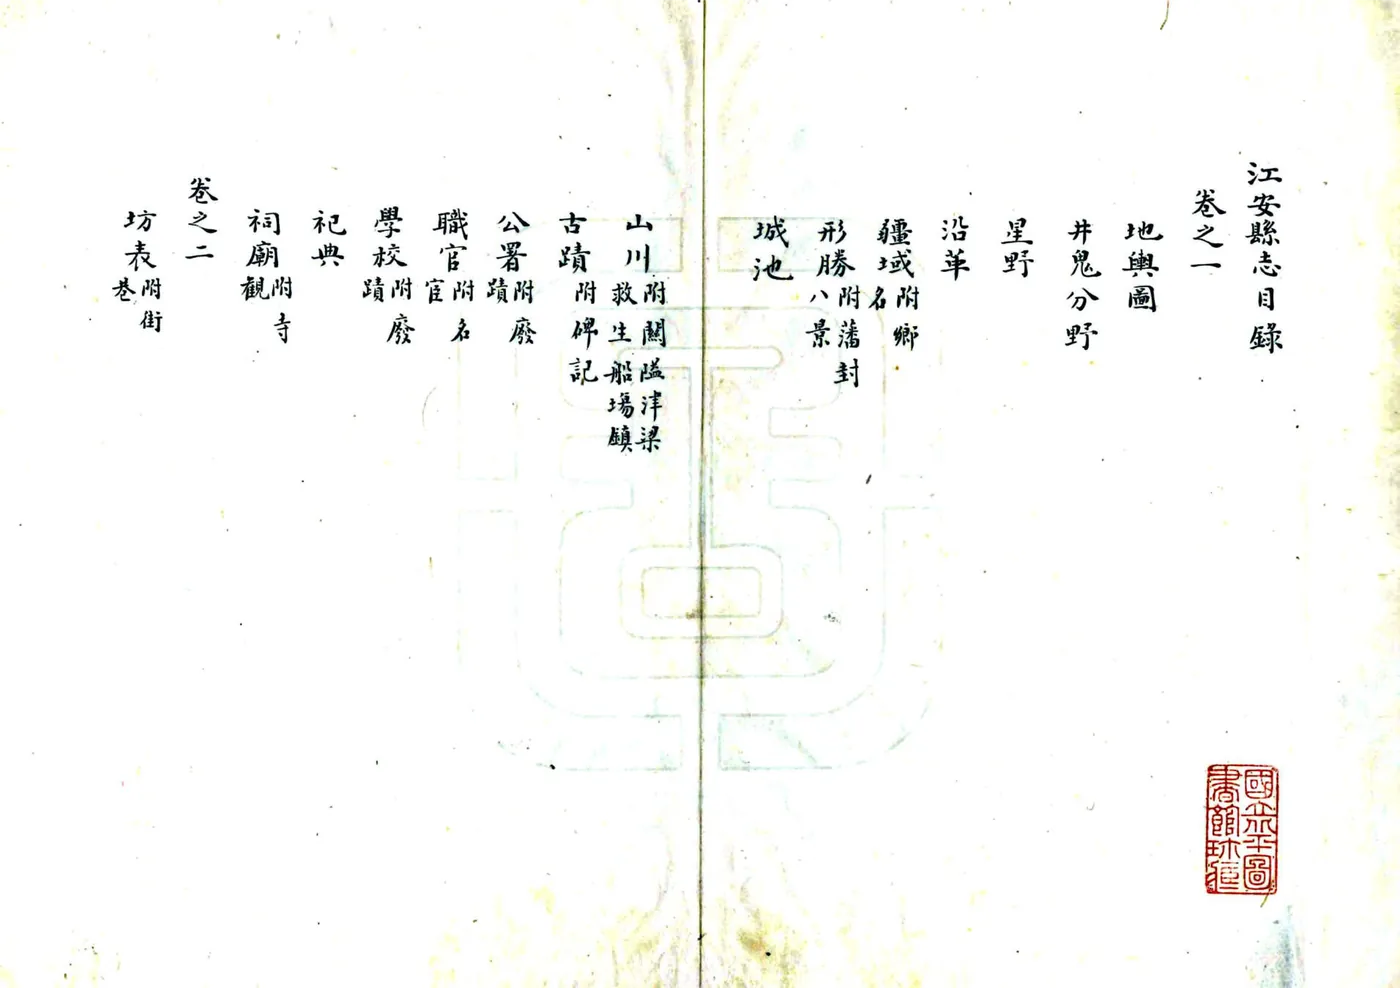 江安縣志目錄
卷之一
地輿圖
井鬼分野
星野
沿革
疆域附鄉名
形勝附藩封八景
城池
山川附關隘津梁救生船場鎮
古蹟附碑記
公署附廢蹟
職官附名宦
學校附廢蹟
祀典
祠廟附寺觀
卷之二
坊表附街巷
國立北平圖書館珍藏